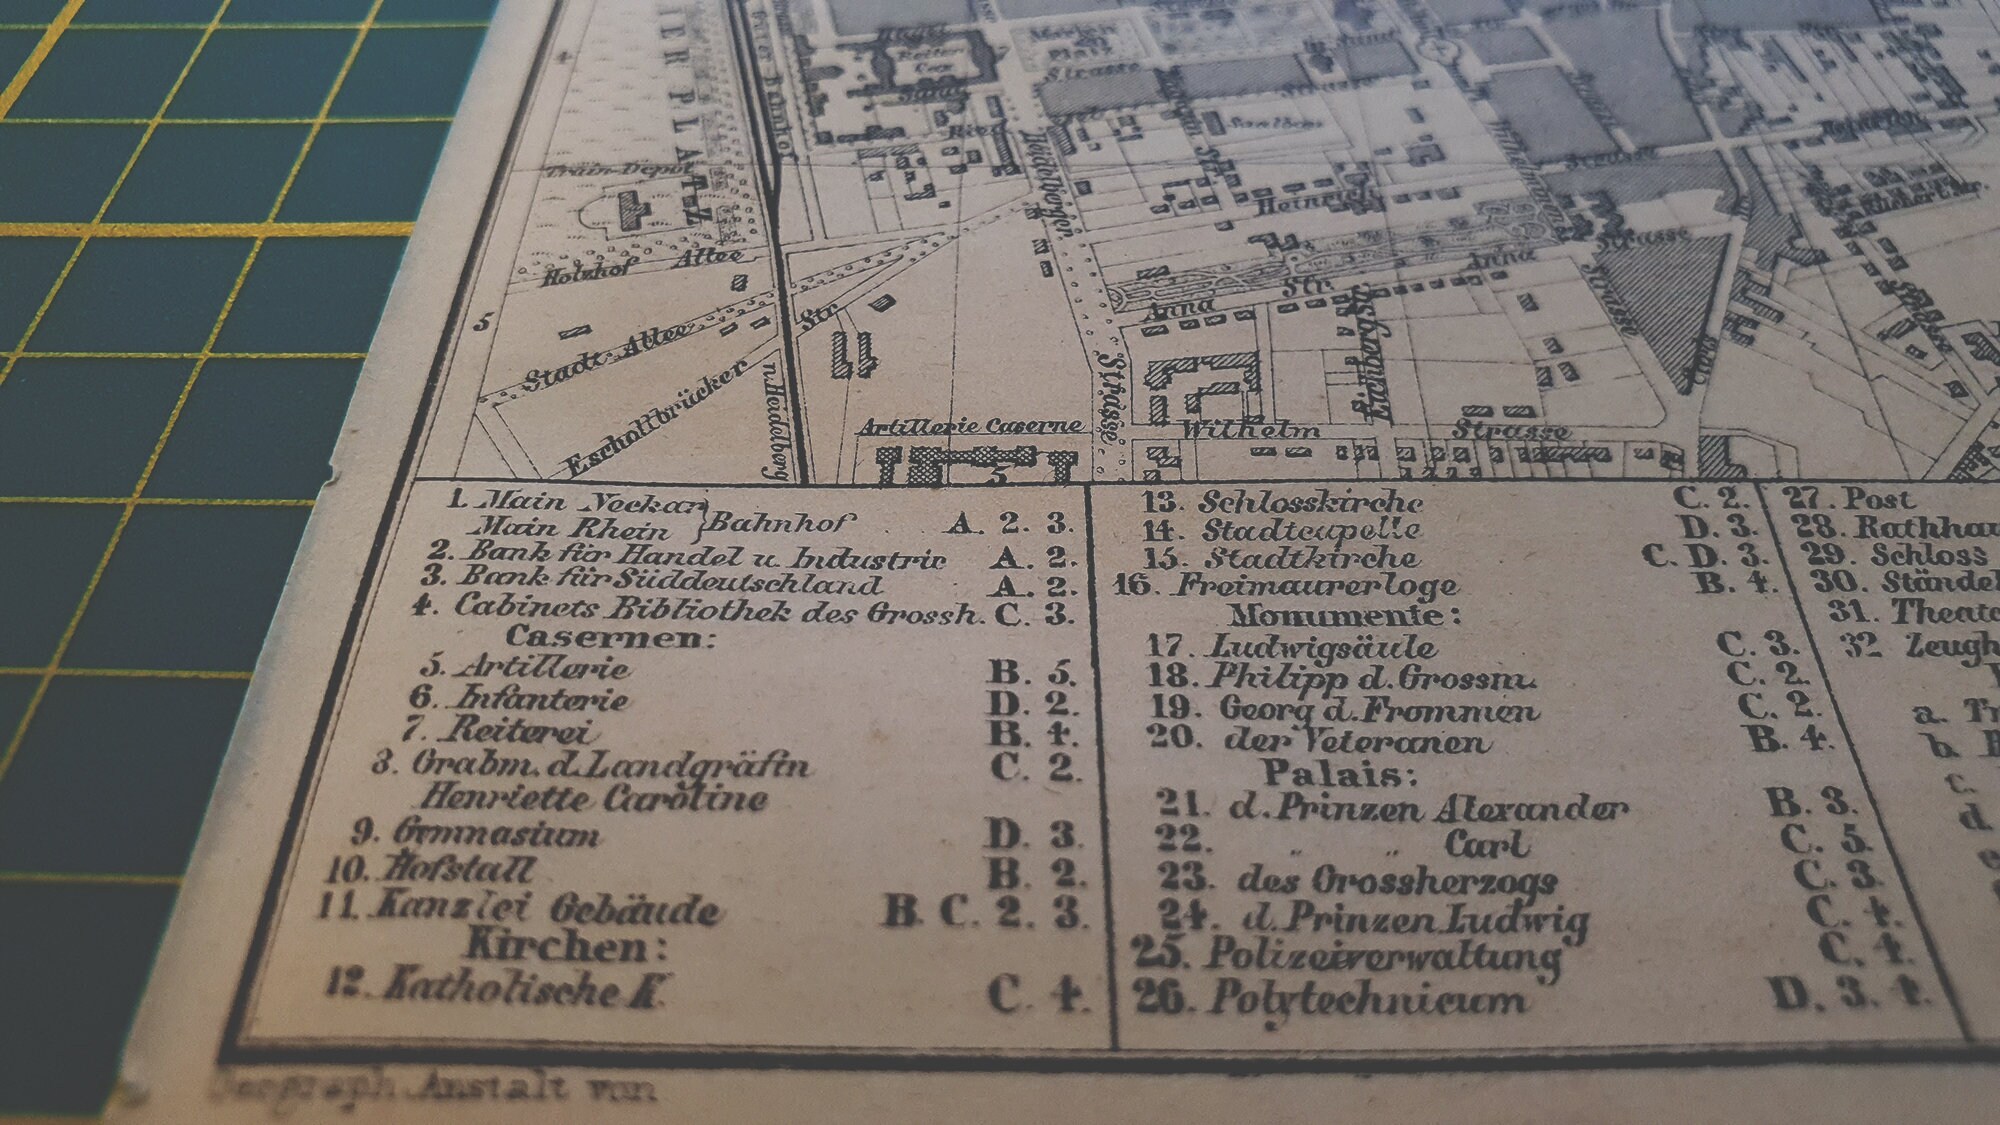 IER PLATZ
Train-Depot
Holzhof Allee
Stadt-Allee
Eschollbrücker
Str.
n. Heidelberg
5
4
Ried
Heidelberger
Strasse
Strasse
Strasse
Saalbau
Heinrich
Anna
Str.
Anna
Strasse
Strasse
Strasse
Artillerie Caserne
5
Wilhelm
Strasse
1. Main Neckar
Main Rhein } Bahnhof A. 2. 3.
2. Bank für Handel u. Industrie A. 2.
3. Bank für Süddeutschland A. 2.
4. Cabinets Bibliothek des Grossh. C. 3.
Casernen:
5. Artillerie B. 5.
6. Infanterie D. 2.
7. Reiterei B. 4.
8. Grabm. d. Landgräfin C. 2.
Henriette Caroline
9. Gymnasium D. 3.
10. Hofstall B. 2.
11. Kanzlei Gebäude B. C. 2. 3.
Kirchen:
12. Katholische K. C. 4.
13. Schlosskirche C. 2.
14. Stadtcapelle D. 3.
15. Stadtkirche C. D. 3.
16. Freimaurerloge B. 4.
Monumente:
17. Ludwigsäule C. 3.
18. Philipp d. Grossm. C. 2.
19. Georg d. Frommen C. 2.
20. der Veteranen B. 4.
Palais:
21. d. Prinzen Alexander B. 3.
22. " " Carl C. 5.
23. des Grossherzogs C. 3.
24. d. Prinzen Ludwig C. 4.
25. Polizeiverwaltung C. 4.
26. Polytechnicum D. 3. 4.
27. Post
28. Rathhau
29. Schloss
30. Stände
31. Theate
32 Zeugh
a. Tr
b.
c.
d.
Geograph. Anstalt von